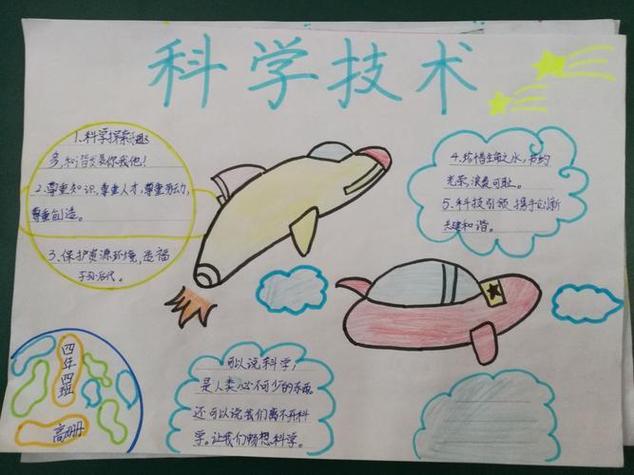 科学技术
1.科学探索趣
多,和谐发展你我他!
2.尊重知识,尊重人才,尊重劳动,
尊重创造。
3.保护资源环境,造福
子孙后代。
4.珍惜生命之水,节约
光荣,浪费可耻。
5.科技引领 携手创新
共建和谐。
四年四班
高册册
可以说科学,
是人类必不可少的东西。
还可以说我们离不开科
学。让我们畅想科学。